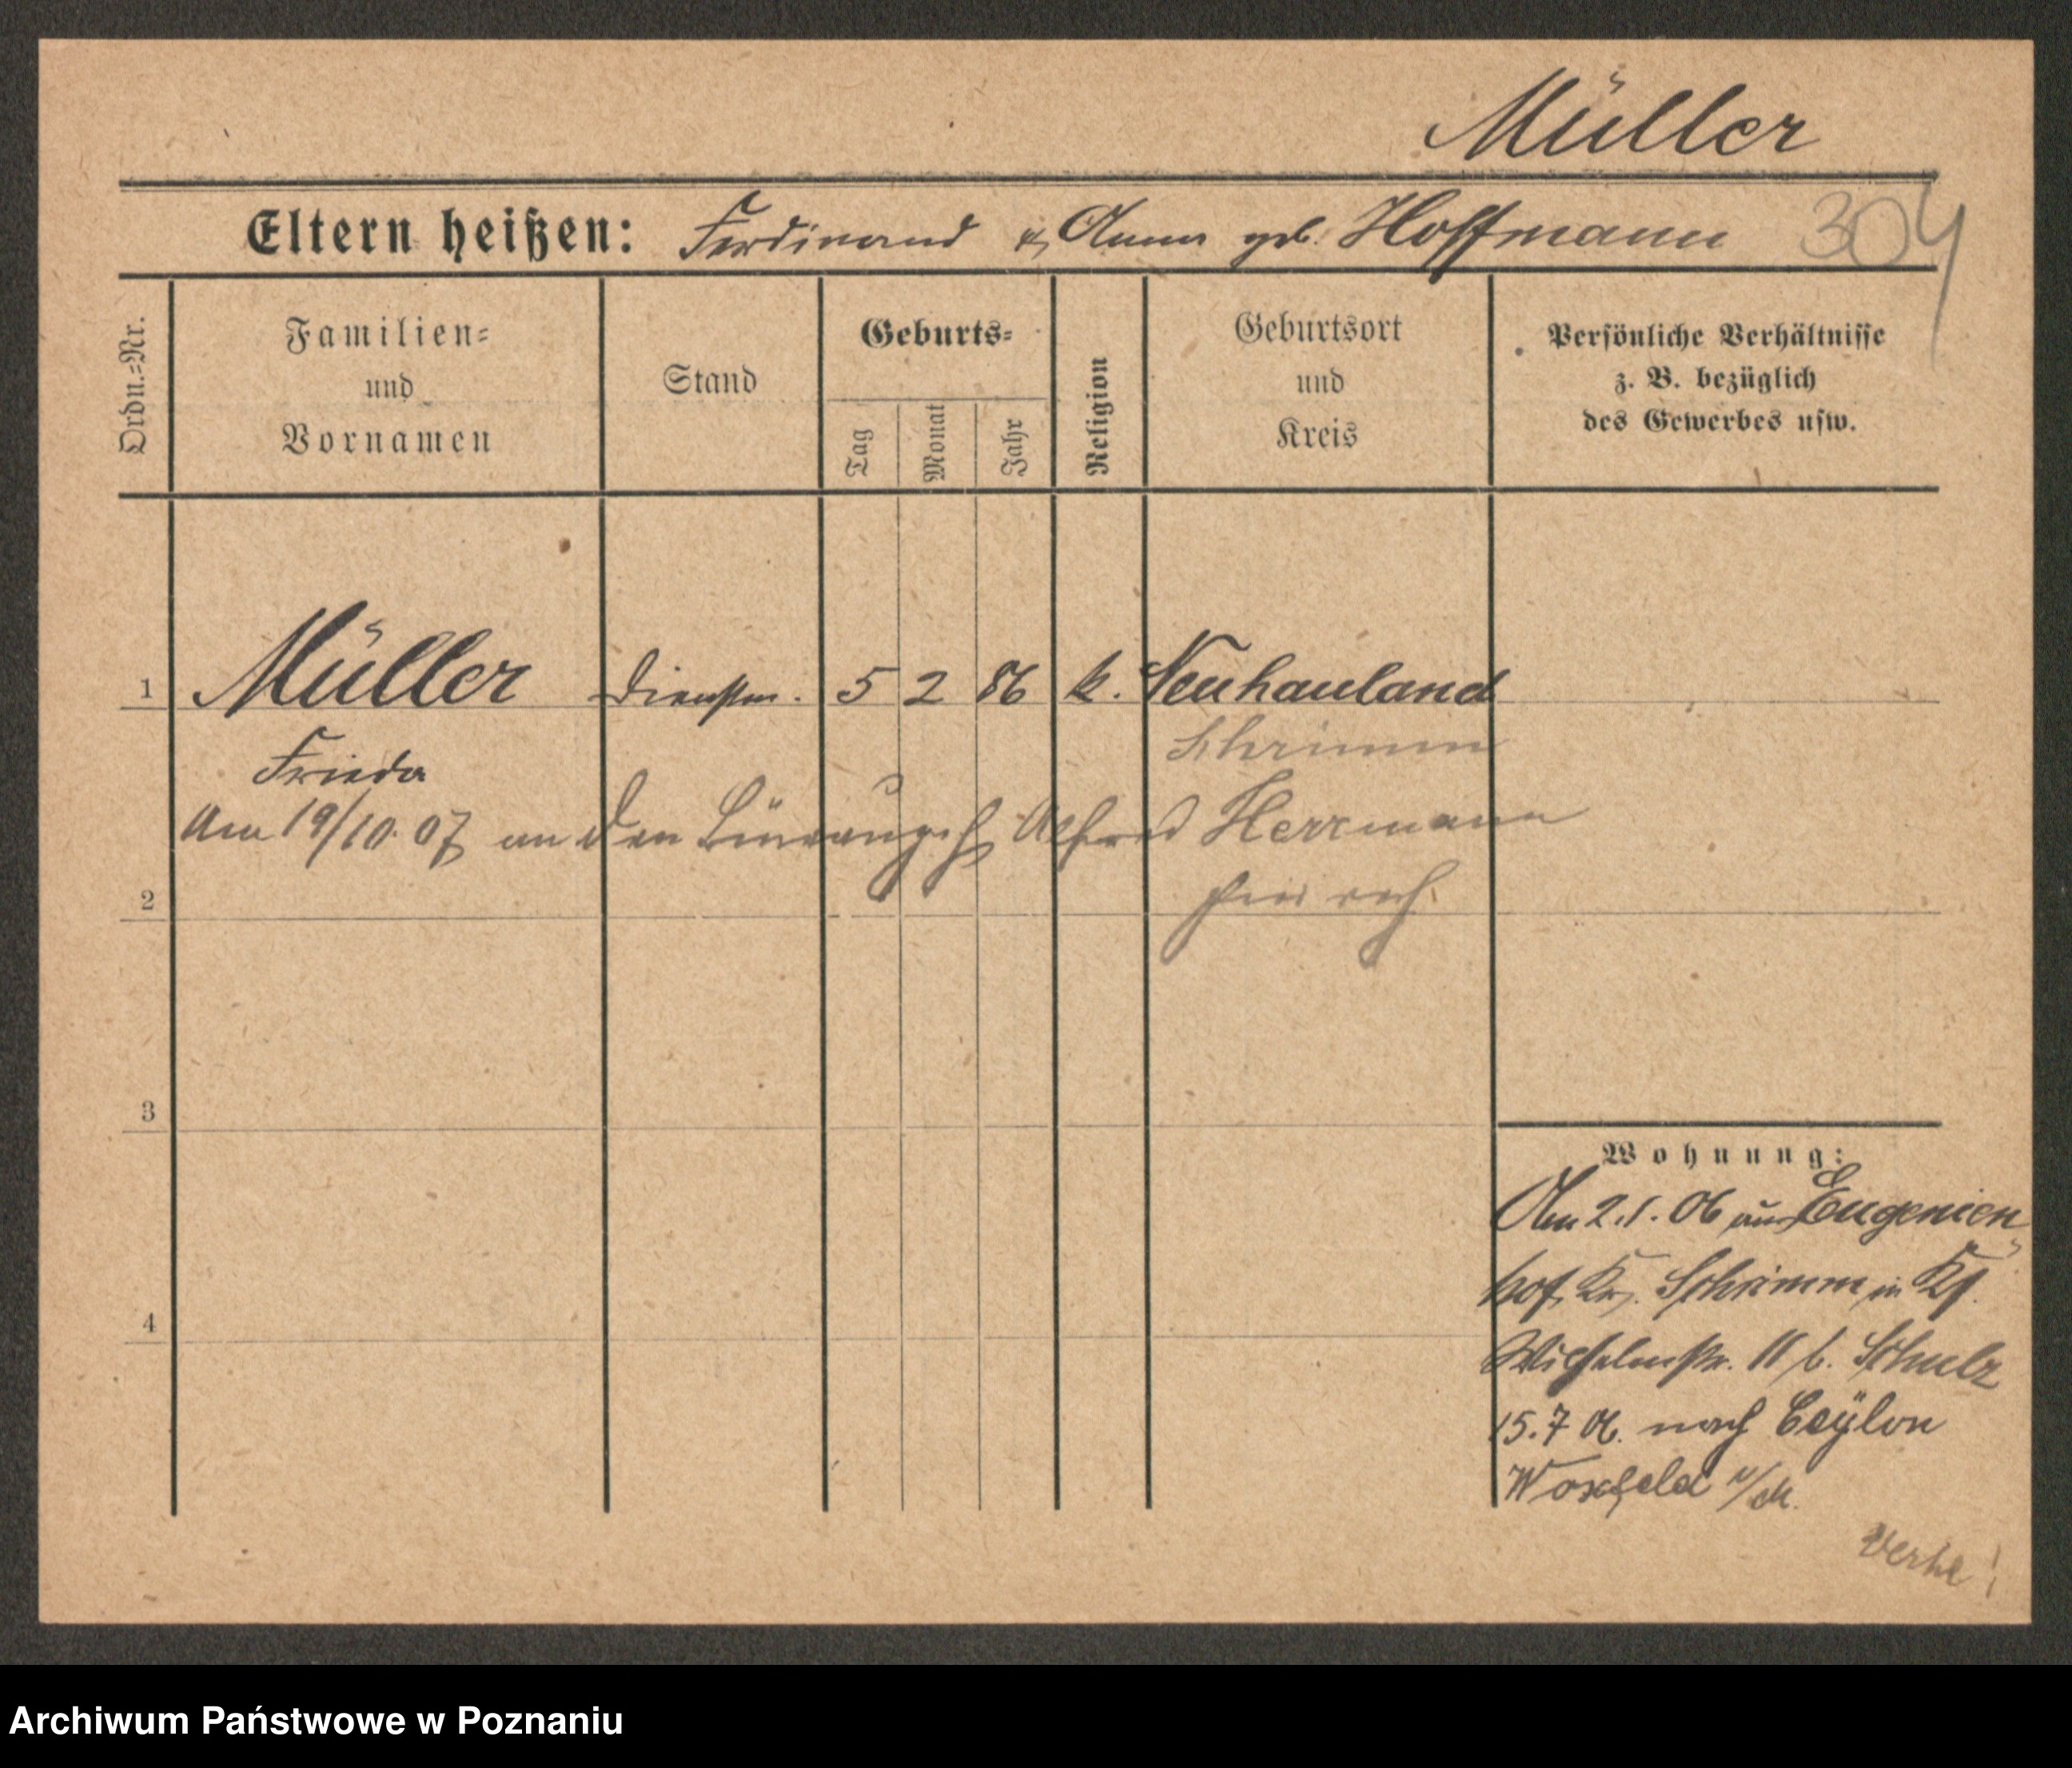 Müller
Eltern heißen: Ferdinand & Anna geb. Hoffmann 304
Ordn.-Nr.
Familien- und Vornamen
Stand
Geburts-
Tag
Monat
Jahr
Religion
Geburtsort und Kreis
Persönliche Verhältnisse z. B. bezüglich des Gewerbes usw.
1 Müller Dienstm. 5 2 86 k. Neuhauland
Schrimm
Frieda
Am 19/10. 07 an den Alfred Herrmann
2
3
4
Wohnung:
Am 2.1. 06 aus Eugenien
hof, Kr. Schrimm in
Wilhelmstr. 11 b. Schulz
15.7 06. nach Ceÿlon
Verhe!
Archiwum Państwowe w Poznaniu